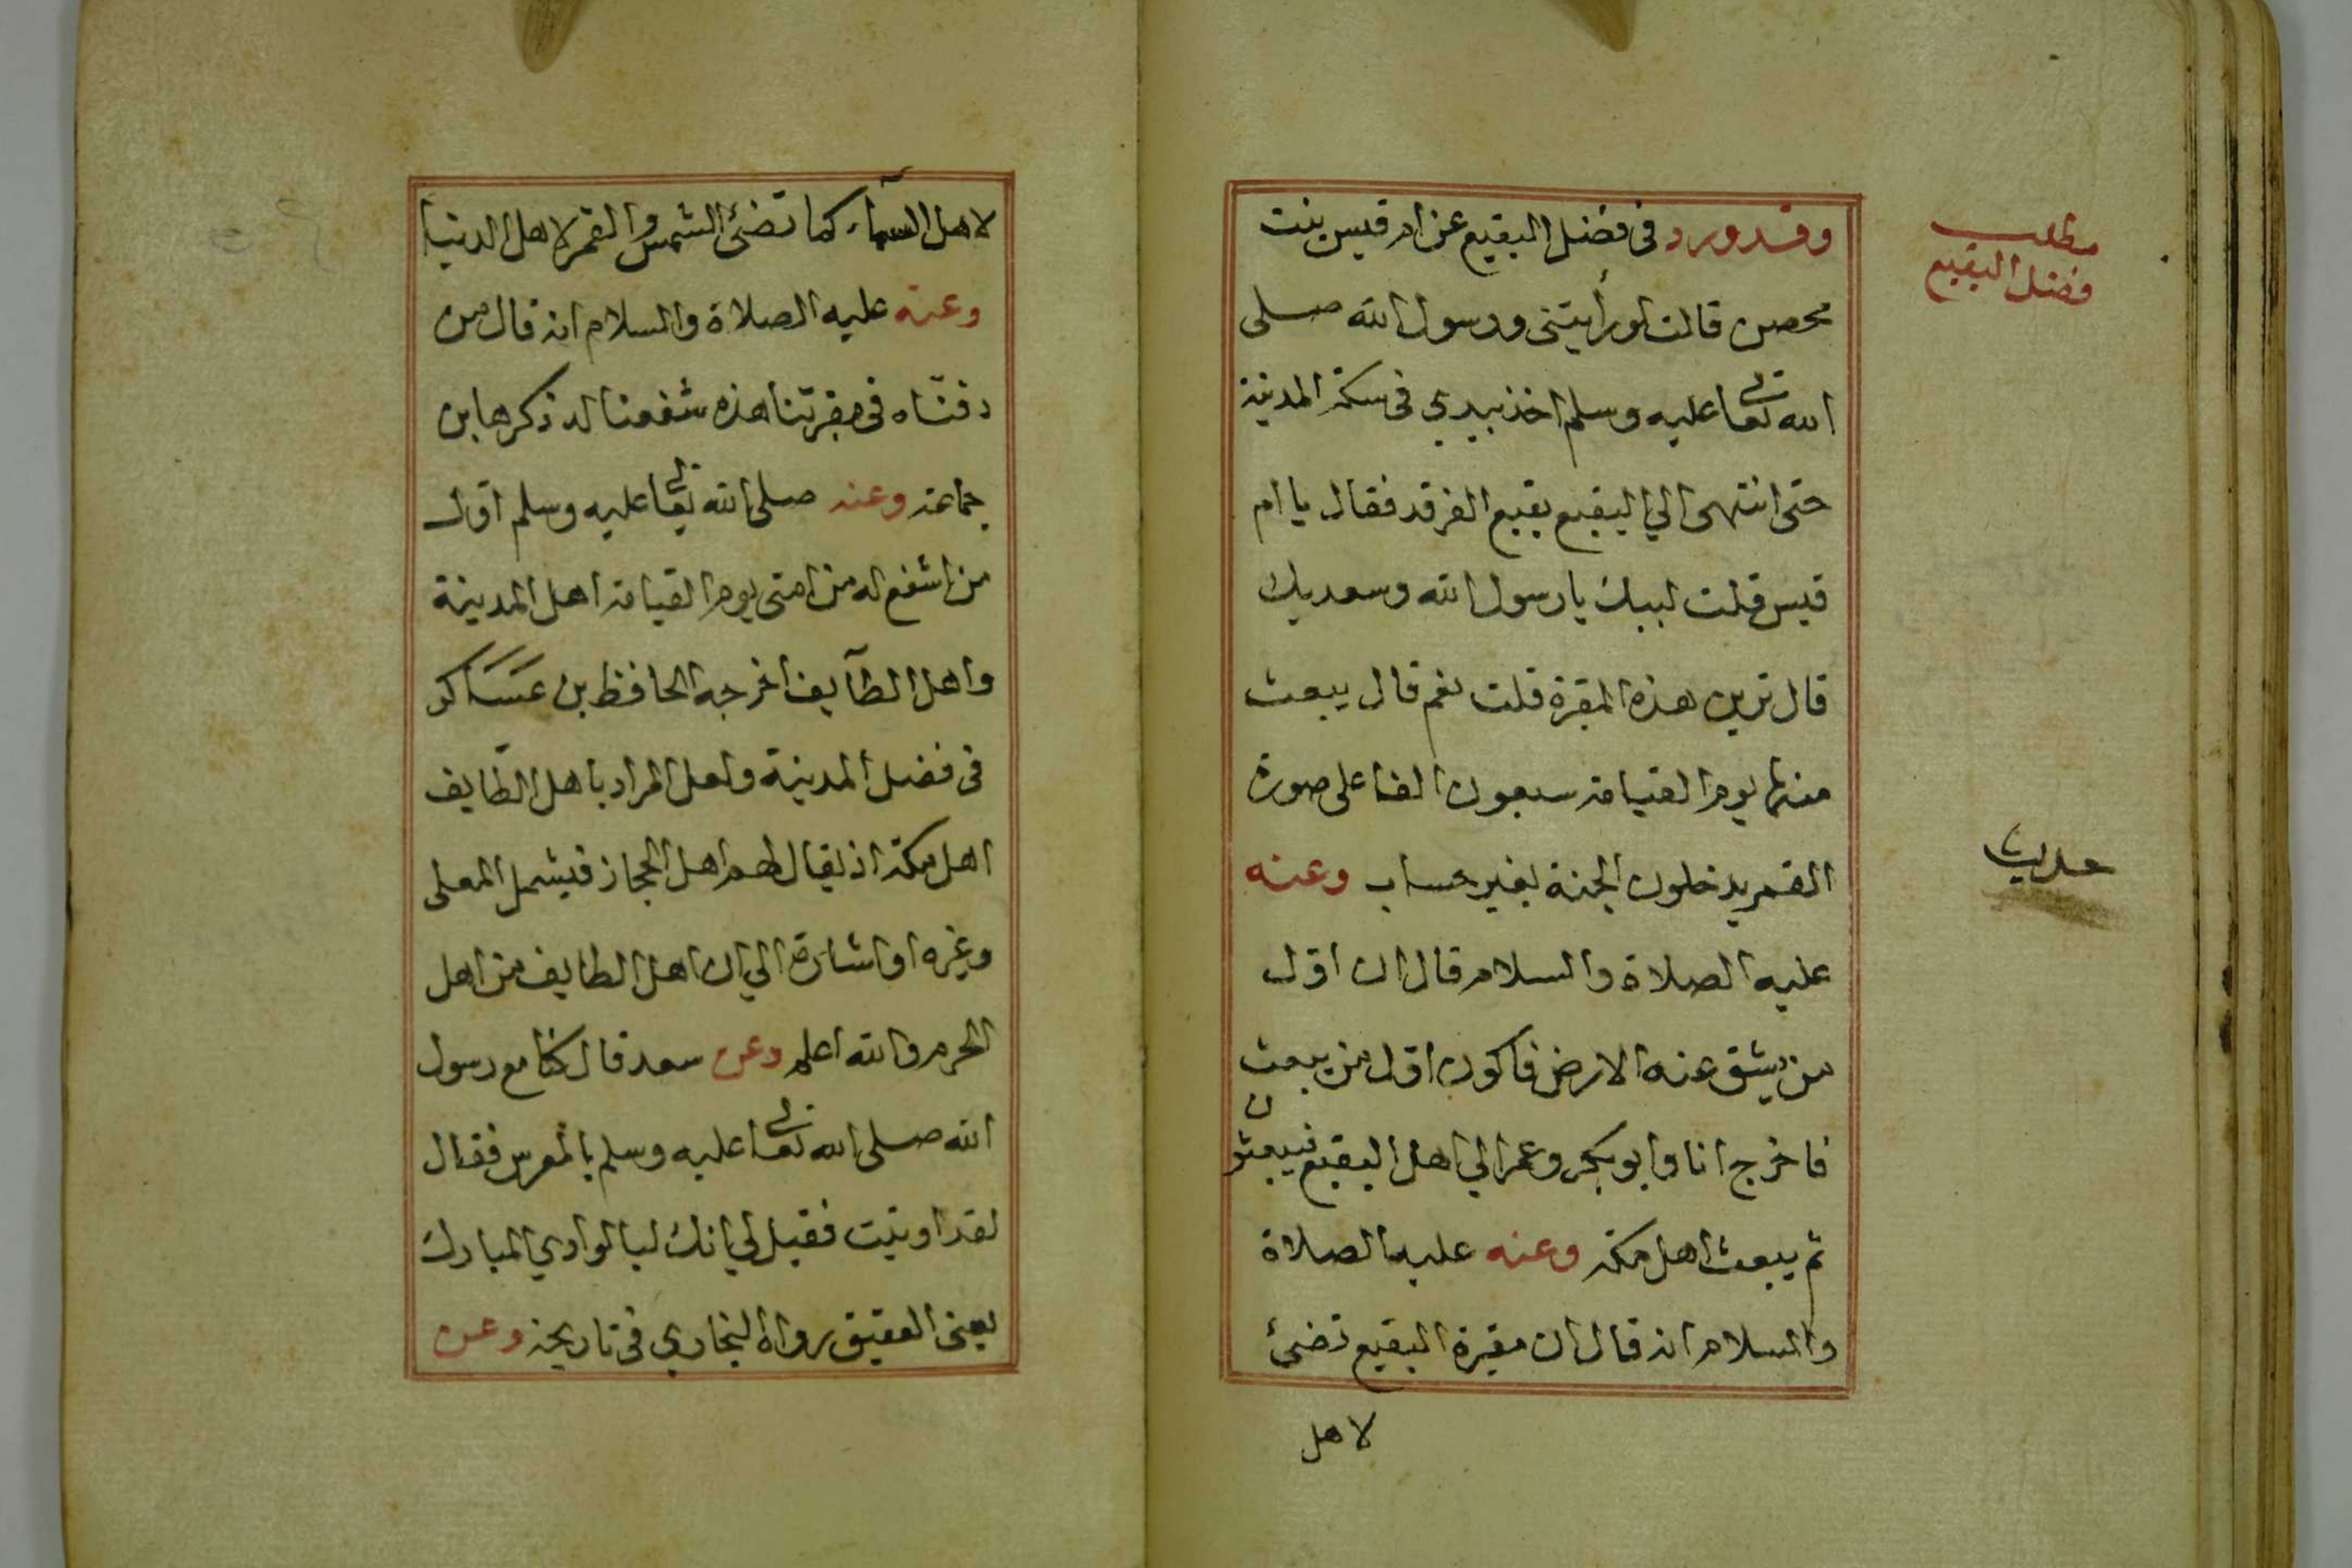 مطلب
فضل البقيع
وقد ورد فى فضل البقيع عن ام قيس بنت
محصن قالت لو رأيتنى ورسول الله صلى
الله تعالى عليه وسلم اخذ بيدي فى سكة المدينة
حتى انتهى الي البقيع بقيع الغرقد فقال يا ام
قيس قلت لبيك يا رسول الله وسعديك
قال ترين هذه المقبرة قلت نعم قال يبعث
منها يوم القيامة سبعون الفا على صورة
القمر يدخلون الجنة بغير حساب وعنه
حديث
عليه الصلاة والسلام قال ان اول
من يشق عنه الارض فاكون اول من يبعث
فاخرج انا وابو بكر وعمر الي اهل البقيع فيبعثون
ثم يبعث اهل مكة وعنه عليه الصلاة
والسلام انه قال ان مقبرة البقيع تضئ
لاهل
لاهل السمآء كما تضئ الشمس والقمر لاهل الدنيا
وعنه عليه الصلاة والسلام انه قال من
دفنّاه فى مقبرتنا هذه شفعنا له ذكرها بن
جماعة وعنه صلى الله تعالى عليه وسلم اول
من اشفع له من امتى يوم القيامة اهل المدينة
واهل الطآيف اخرجه الحافظ بن عساكر
فى فضل المدينة ولعل المراد باهل الطّايف
اهل مكة اذ يقال لهم اهل الحجاز فيشمل المعلى
وغيره او اشارة الي ان اهل الطايف من اهل
الحرم والله اعلم وعن سعد قال كنا مع رسول
الله صلى الله تعالى عليه وسلم بالمعرس فقال
لقد اوتيت فقيل لي انك لبالوادي المبارك
يعنى العقيق رواه البخاري فى تاريخه وعن